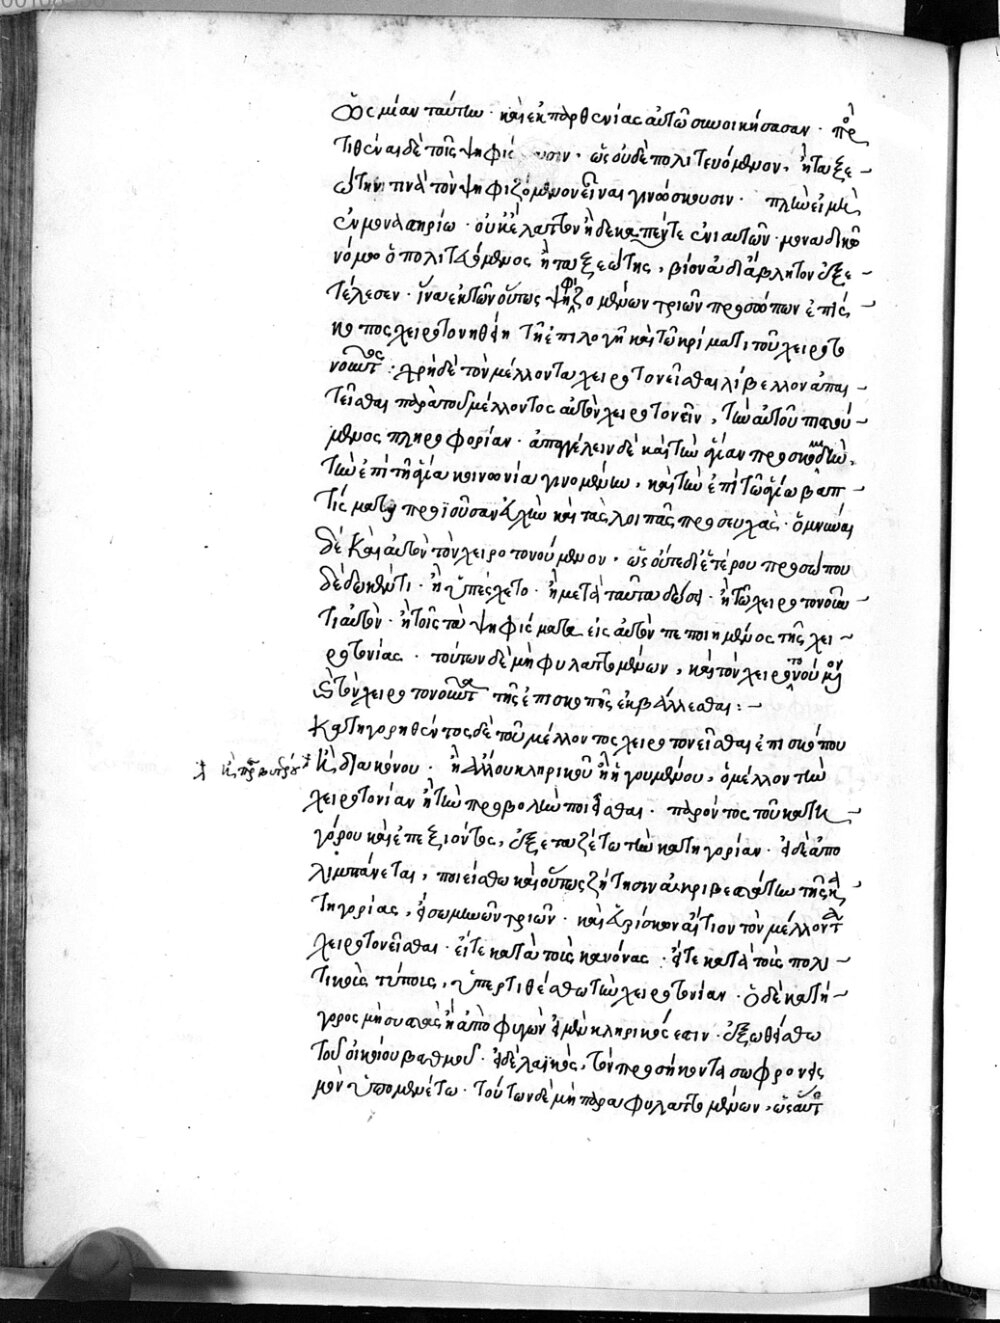 πρὸς μίαν ταύτην · καὶ ἐκ παρθενίας αὐτῷ συνοικήσασαν · προσ
τιθέναι δὲ τοῖς ψηφίσμασιν · ὡς οὐδὲ πολιτευόμενον, ἢ ταξε
ώτην τινὰ τὸν ψηφιζόμενον εἶναι γινώσκουσιν · πλὴν εἰ μὴ
ἐν μοναστηρίῳ · οὐκ ἔλαττον ἢ δεκαπέντε ἐνιαυτῶν · μοναδικῶ
νόμω ὁ πολιτευόμενος ἢ ταξεώτης, βίον ἀδιάβλητον ἐξε
τέλεσεν · ἵνα ἐκ τῶν οὕτως ψηφιζομένων τριῶν προσώπων ἐπίσ
κοπος χειροτονηθείη τῇ ἐπιλογῇ καὶ τῷ κρίματι τοῦ χειροτο
νοῦντος : χρὴ δὲ τὸν μέλλοντα χειροτονεῖσθαι λίβελλον ἀπαι
τεῖσθαι παρὰ τοῦ μέλλοντος αὐτὸν χειροτονεῖν, τὴν αὐτοῦ
πληροφορίαν · ἀπαγγέλειν δὲ καὶ τὴν ἁγίαν προσκομιδὴν,
τὴν ἐπὶ τῇ ἁγία κοινωνία γινομένην, καὶ τὴν ἐπὶ τῷ ἁγίω βαπ
τίσματι προϊοῦσαν εὐχὴν καὶ τὰς λοιπὰς προσευχὰς · ὀμνύναι
δὲ καὶ αὐτὸν τὸν χειροτονούμενον · ὡς οὔπε δι ἑτέρου προσώπου
δέδωκέν τι · ἢ ὑπέσχετο · ἢ μετὰ ταῦτα δώσει · ἢ τῷ χειροτονοῦν
τι αὐτὸν · ἢ τοῖς τὰ ψηφίσματα εἰς αὐτὸν πεποιημένος τῆς χει
ροτονίας · τούτων δὲ μὴ φυλαττομένων, καὶ τὸν χειροτονούμενον
καὶ τὸν χειροτονοῦντα τῆς ἐπισκοπῆς ἐκβάλλεσθαι :
Κατηγορηθέντος δὲ τοῦ μέλλοντος χειροτονεῖσθαι ἐπισκόπου
καὶ πρεσβυτέρου
καὶ διακόνου · ἢ ἄλλου κληρικοῦ ἢ ἡγουμένου, ὁ μέλλων τὴν
χειροτονίαν ἢ τὴν προβολὴν ποιεῖσθαι · παρόντος τοῦ κατη
γόρου καὶ ἐπεξιόντος, ἐξεταζέτω τὴν κατηγορίαν · εἰ δὲ ἀπο
λιμπάνεται, ποιείσθω καὶ οὕτως ζήτησιν ἀκριβεστάτην τῆς κα
τηγορίας, εἴσω μηνῶν τριῶν · καὶ εὑρίσκων αἴτιον τὸν μέλλοντα
χειροτονεῖσθαι · εἴτε κατὰ τοὺς κανόνας · εἴτε κατὰ τοὺς πολι
τικοὺς τύποις, ὑπερτιθέσθω τὴν χειροτονίαν · ὁ δὲ κατή
γορος μὴ συστὰς ἢ ἀποφυγὼν εἰ μὲν κληρικός ἐστιν · ἐξωθείσθω
τοῦ οἰκείου βαθμοῦ · εἰ δὲ λαϊκὸς, τὸν προσήκοντα σωφρονισ
μὸν ὑπομενέτω · τούτων δὲ μὴ παραφυλαττομένων, ὡσαύτως